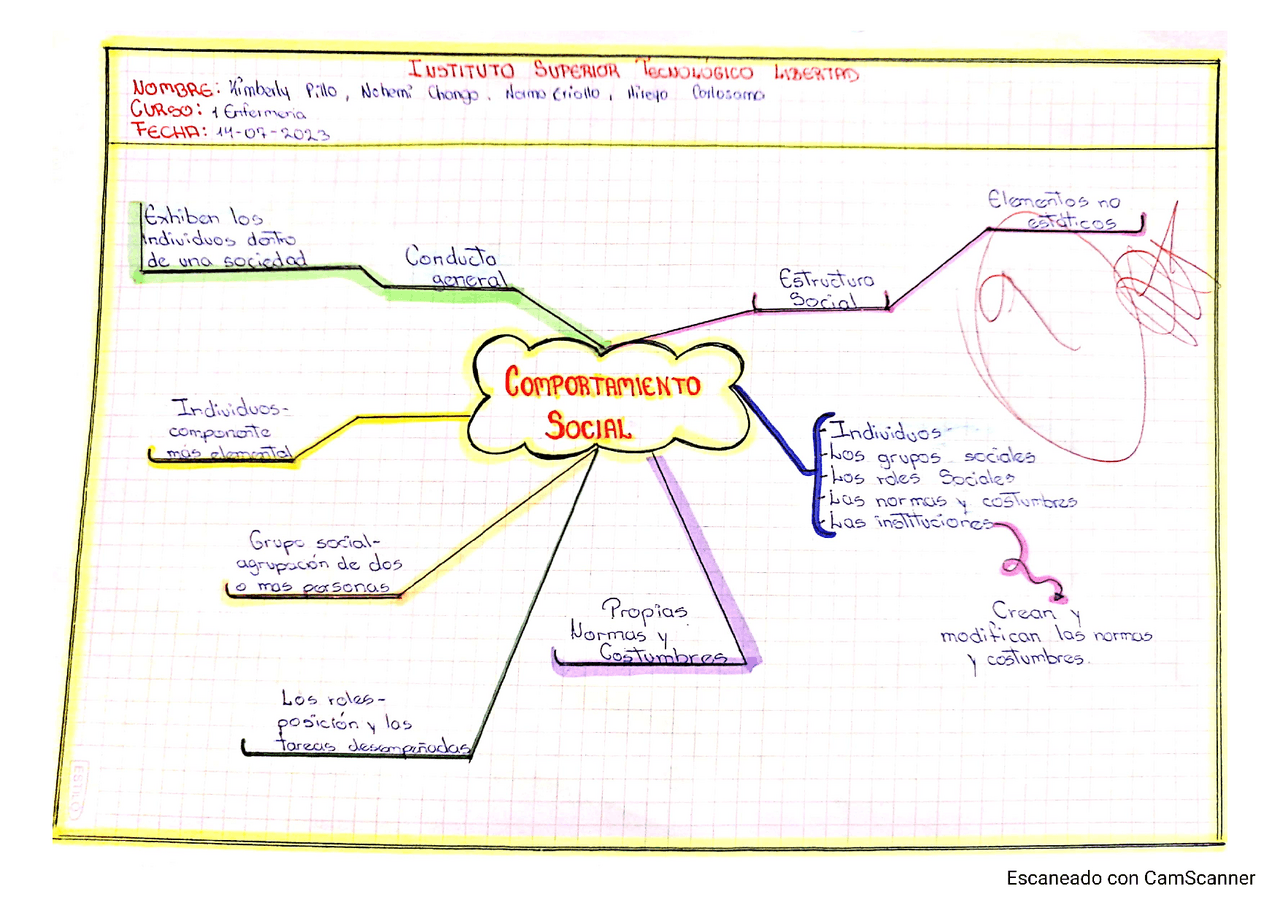 INSTITUTO SUPERIOR TECNOLÓGICO LIBERTAD
NOMBRE: Kimberly Pillo, Nohemi Chango, Norma Criollo, Mireya
CURSO: 1 Enfermeria
FECHA: 14-07-2023
Exhiben los
individuos dentro
de una sociedad
Conducta
general
Estructura
Social
Elementos no
estáticos
9
COMPORTAMIENTO
SOCIAL
Individuos-
componente
más elemental
- Individuos
- Los grupos sociales
- Los roles Sociales
- Las normas y costumbres
- Las instituciones
Grupo social-
agrupación de dos
o mas personas
Propias
Normas y
Costumbres
Crean y
modifican las normas
y costumbres.
Los roles-
posición y las
tareas desempeñadas
ESTILO
Escaneado con CamScanner